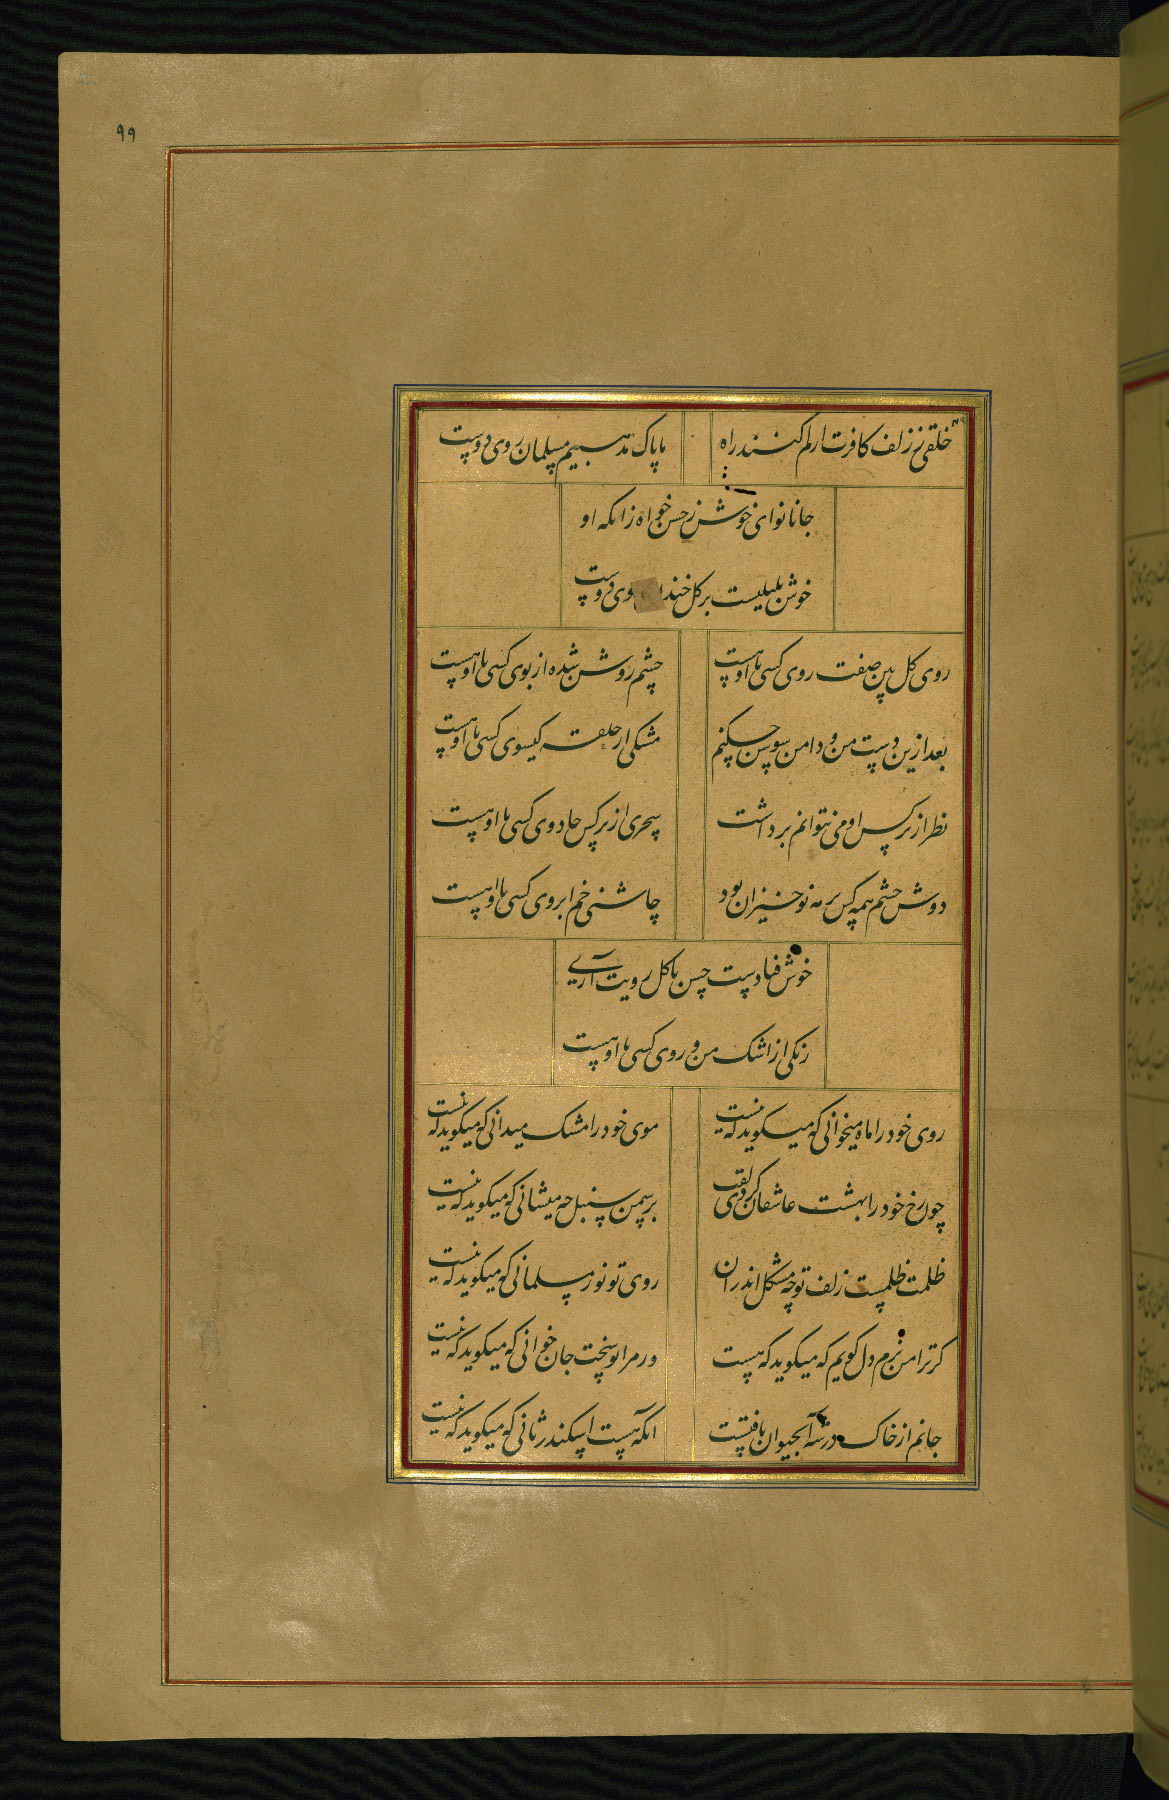 ۹۹
خلقی ززلف کافرت ارکم کنند راه ما پاک مذهبیم مسلمان روی دوست
جانا نوای خوش ز حسن خواه زانکه او
خوش بلبلیست بر کل خندان روی دوست
روی کل بین صفت روی کسی با او هست چشم روشن شده از بوی کسی با او هست
بعد ازین دست من و دامن سوسن چکنم مشکی از حلقه کیسوی کسی با او هست
نظر از نرکس او می نتوانم برداشت سحری از نرکس جادوی کسی با او هست
دوش چشم همه کس بر مه نو خیزان بود چاشنی خم ابروی کسی با او هست
خوش فتادست حسن با کل رویت آری
رنکی از اشک من و روی کسی با او هست
روی خود را ماه میخوانی که میکوید که نیست موی خود را مشک میدانی که میکوید که نیست
چون رخ خود را بهشت عاشقان کردی لقب بر سمن سنبل چه میشانی که میکوید که نیست
ظلمت ظلمست زلف تو چه مشکل اندران روی تو نور مسلمانی که میکوید که نیست
کر ترا من نرم دل کویم که میکوید که هست ور مرا تو سخت جان خوانی که میکوید که نیست
جانم از خاک درت آبحیوان یافتست انکه هست اسکندر ثانی که میکوید که نیست